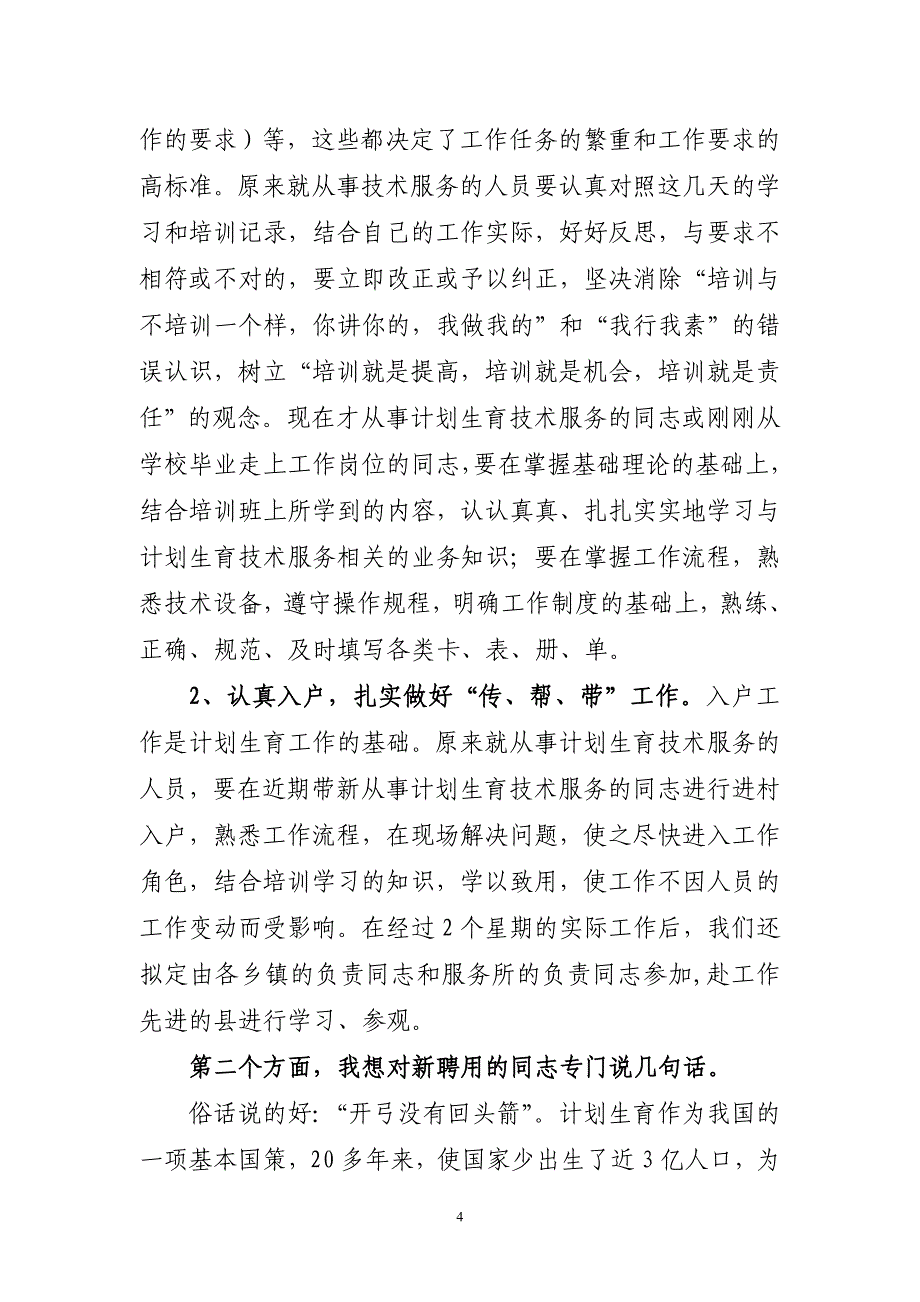 作的要求）等，这些都决定了工作任务的繁重和工作要求的
高标准。原来就从事技术服务的人员要认真对照这几天的学
习和培训记录，结合自己的工作实际，好好反思，与要求不
相符或不对的，要立即改正或予以纠正，坚决消除“培训与
不培训一个样，你讲你的，我做我的”和“我行我素”的错
误认识，树立“培训就是提高，培训就是机会，培训就是责
任”的观念。现在才从事计划生育技术服务的同志或刚刚从
学校毕业走上工作岗位的同志，要在掌握基础理论的基础上，
结合培训班上所学到的内容，认认真真、扎扎实实地学习与
计划生育技术服务相关的业务知识；要在掌握工作流程，熟
悉技术设备，遵守操作规程，明确工作制度的基础上，熟练、
正确、规范、及时填写各类卡、表、册、单。
2、认真入户，扎实做好“传、帮、带”工作。入户工
作是计划生育工作的基础。原来就从事计划生育技术服务的
人员，要在近期带新从事计划生育技术服务的同志进行进村
入户，熟悉工作流程，在现场解决问题，使之尽快进入工作
角色，结合培训学习的知识，学以致用，使工作不因人员的
工作变动而受影响。在经过2个星期的实际工作后，我们还
拟定由各乡镇的负责同志和服务所的负责同志参加，赴工作
先进的县进行学习、参观。
第二个方面，我想对新聘用的同志专门说几句话。
俗话说的好：“开弓没有回头箭”。计划生育作为我国的
一项基本国策，20多年来，使国家少出生了近3亿人口，为
4